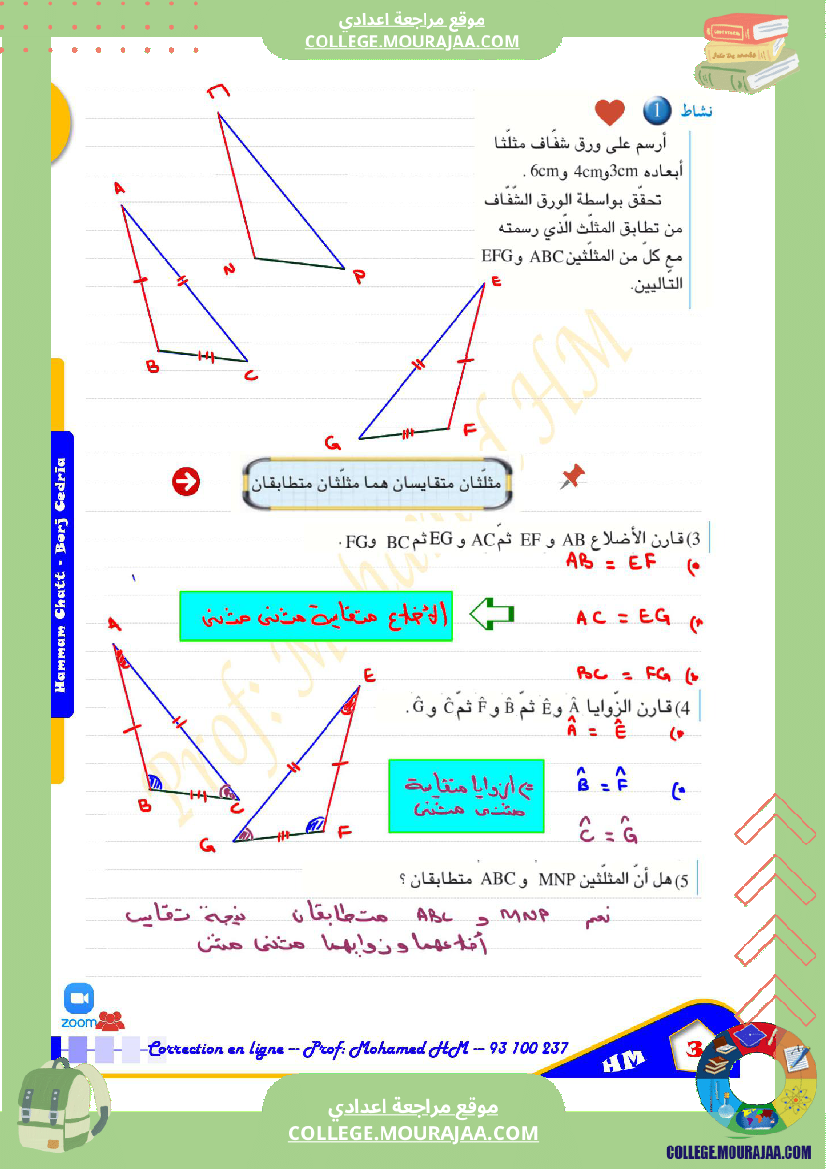 موقع مراجعة اعدادي
COLLEGE.MOURAJAA.COM
نشاط 1
أرسم على ورق شفّاف مثلّثا
أبعاده 3cm و4cm و6cm .
تحقّق بواسطة الورق الشّفّاف
من تطابق المثلّث الّذي رسمته
مع كلّ من المثلّثين ABC و EFG
التاليين.
A
N
P
B
C
E
G
F
مثلّثان متقايسان هما مثلّثان متطابقان
3) قارن الأضلاع AB و EF ثمّ AC و EG ثم BC و FG .
AB = EF
الأضلاع متقايسة مثنى مثنى
AC = EG
BC = FG
4) قارن الزّوايا Â و Ê ثمّ B̂ و F̂ ثمّ Ĉ و Ĝ.
Â = Ê
A
E
B
C
G
F
الزوايا متقايسة
مثنى مثنى
B̂ = F̂
Ĉ = Ĝ
5) هل أنّ المثلّثين MNP و ABC متطابقان ؟
نعم MNP و ABC متطابقان نتيجة تقايس
أضلاعهما وزواياهما مثنى مثنى
Hammam Chatt - Borj Cedria
Prof: Mohamed HM
zoom
Correction en ligne -- Prof: Mohamed HM -- 93 100 237
HM
3
موقع مراجعة اعدادي
COLLEGE.MOURAJAA.COM
COLLEGE.MOURAJAA.COM